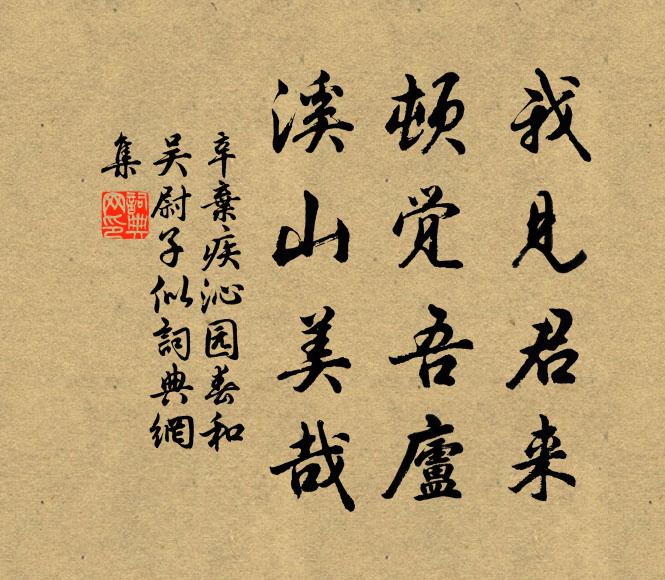 我见君来
顿觉吾廬
溪山美哉
辛棄疾沁园春和
吴尉子似詞典網
集
詞典网印